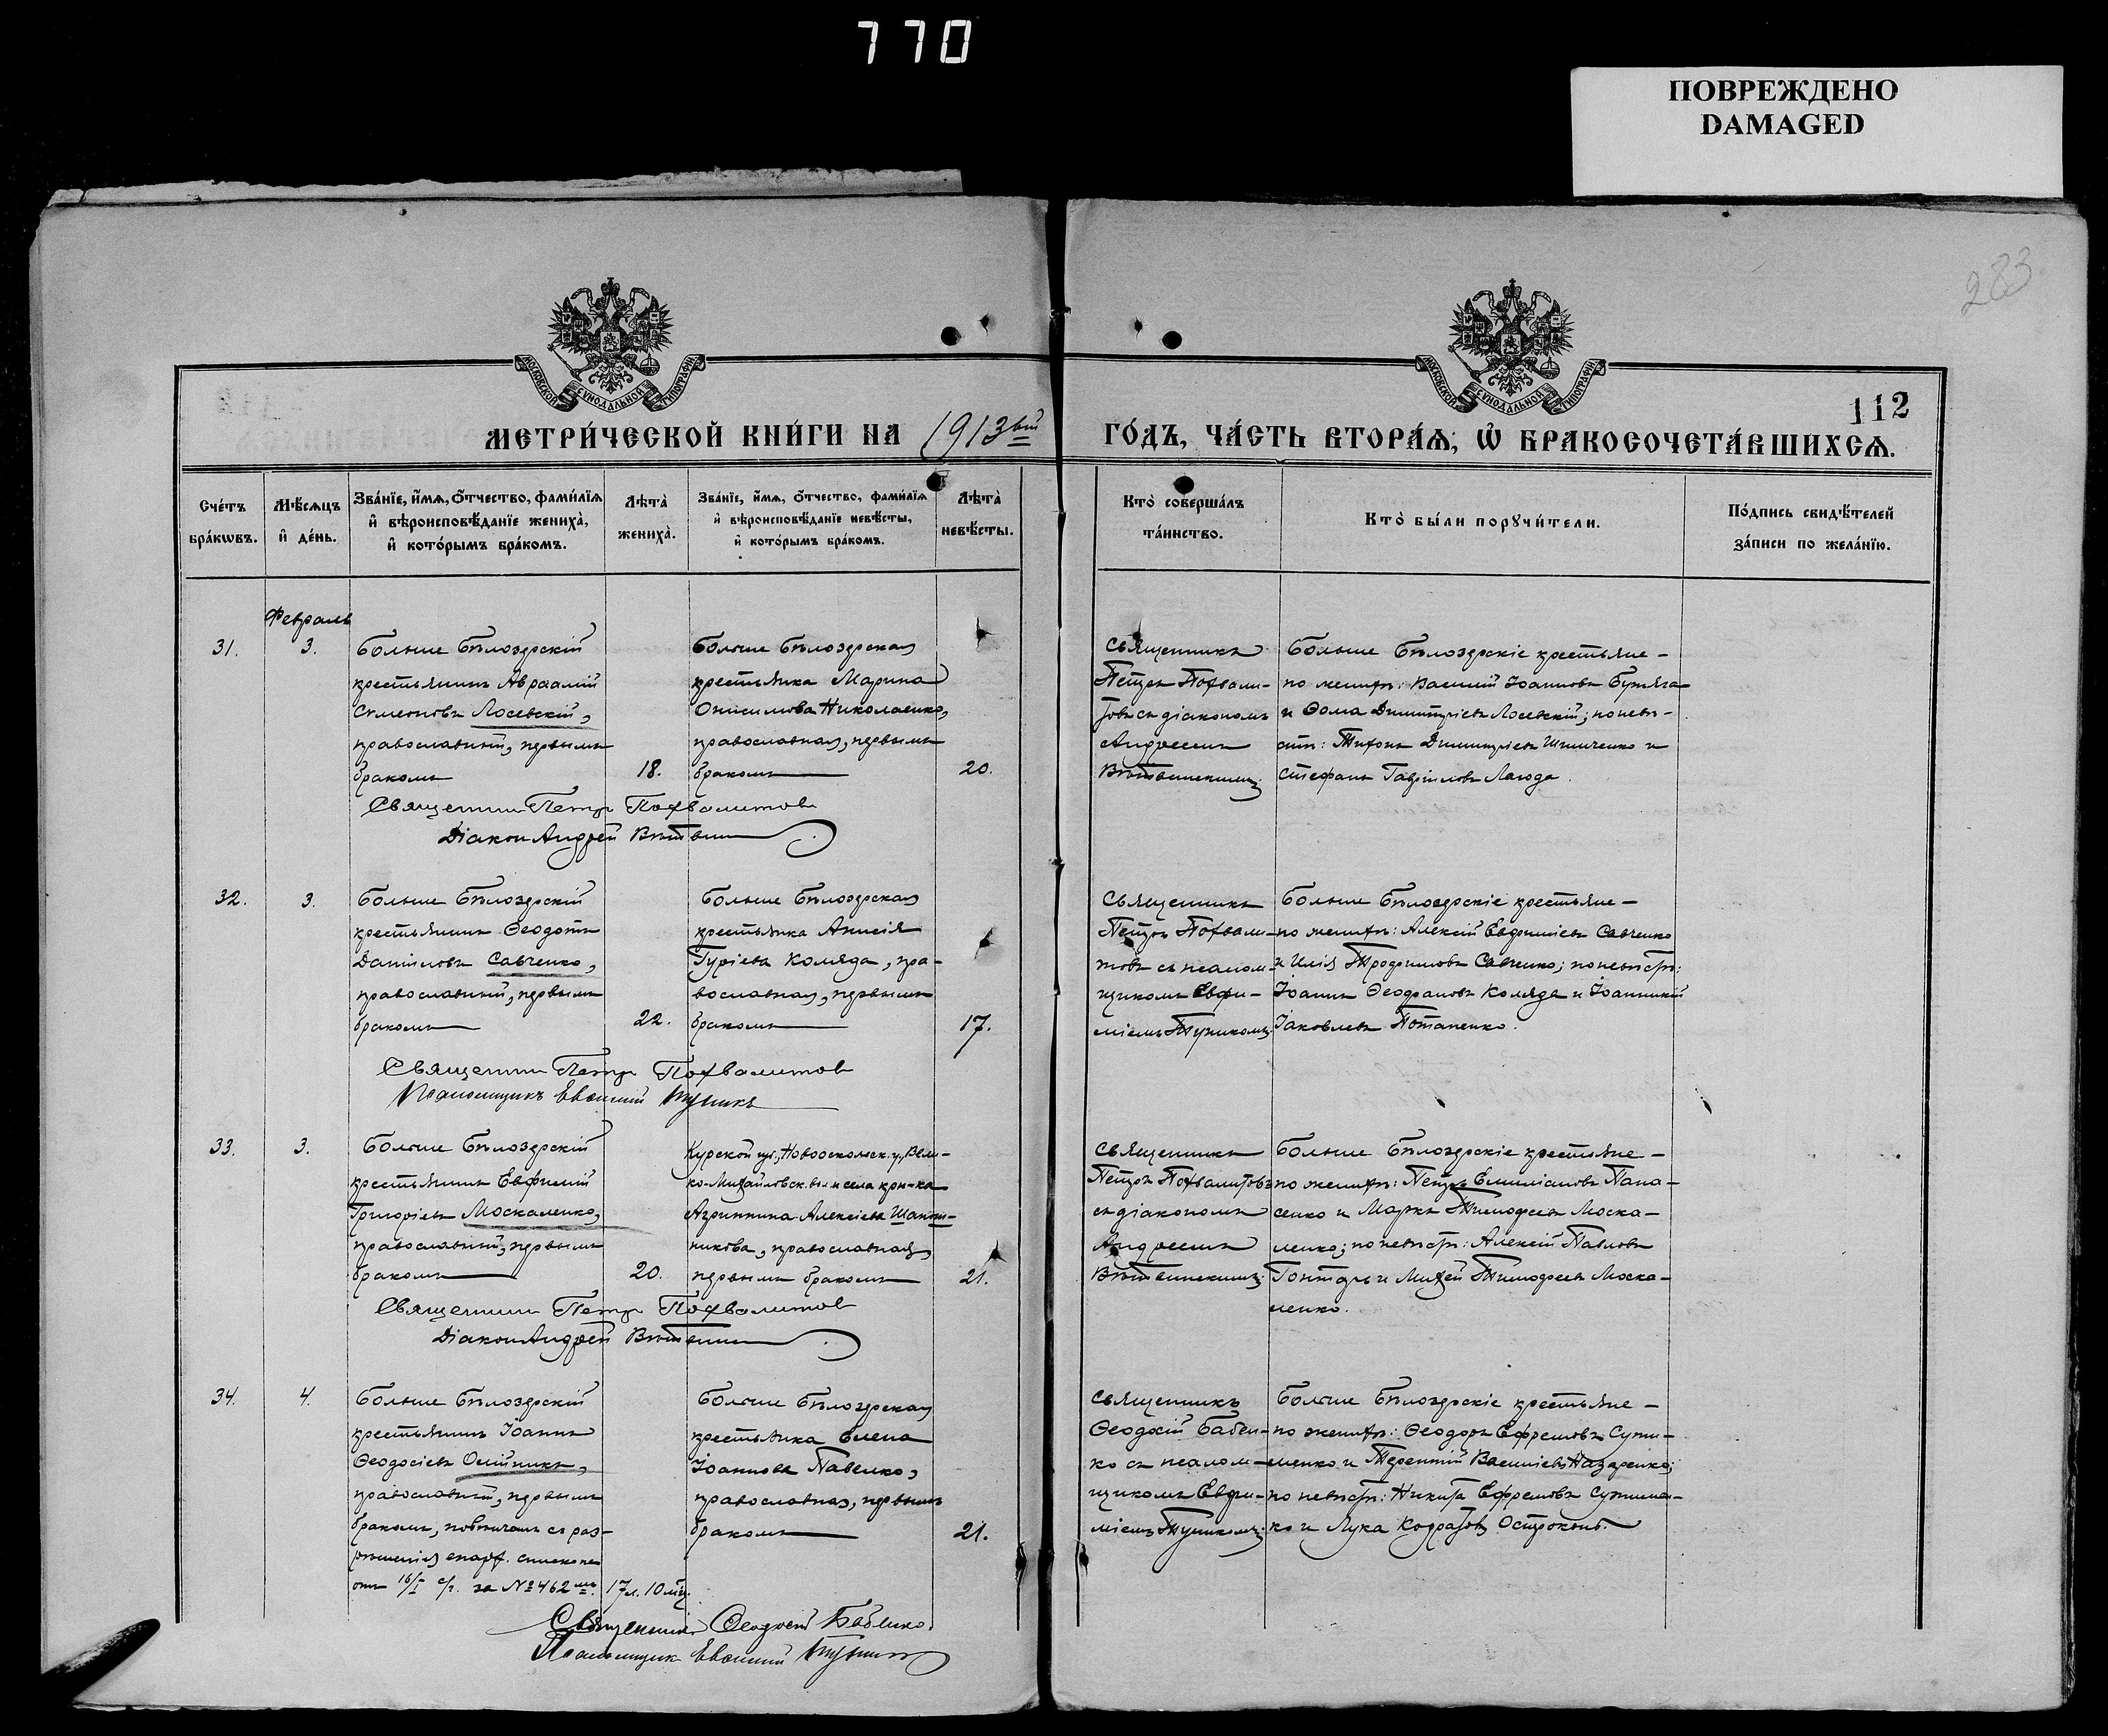 770
ПОВРЕЖДЕНО
DAMAGED
283
МОСКОВСКОЙ СУНОДАЛЬНОЙ ТИПОГРАФІИ
МОСКОВСКОЙ СУНОДАЛЬНОЙ ТИПОГРАФІИ
112
МЕТРИ́ЧЕСКОЙ КНИ́ГИ НА 1913вый ГО́ДЪ, ЧА́СТЬ ВТОРА́Ѧ, Ѡ҆ БРАКОСОЧЕТА́ВШИХСѦ.
Сче́тъ бра́кѡвъ.
Мѣ́сѧцъ и҆ де́нь.
Зва́нїе, и҆́мѧ, ѻ҆́тчество, фами́лїѧ и҆ вѣроисповѣ́данїе жениха̀, и҆ кото́рымъ бра́комъ.
Лѣ́та̀ жениха̀.
Зва́нїе, и҆́мѧ, ѻ҆́тчество, фами́лїѧ и҆ вѣроисповѣ́данїе невѣ́сты, и҆ кото́рымъ бра́комъ.
Лѣ́та̀ невѣ́сты.
Кто̀ соверша́лъ та́инство.
Кто̀ бы́ли порꙋчи́тели.
По́дпись свидѣ́телей за́писи по жела́нїю.
Февраль
31.
3.
Больше Бѣлозерскій
крестьянинъ Авраамій
Симеоновъ Лосевскій,
православный, первымъ
бракомъ
18.
Больше Бѣлозерская
крестьянка Марина
Онисимова Николаенко,
православная, первымъ
бракомъ
20.
Священникъ
Петръ Похвали-
товъ съ діакономъ
Андреемъ
Больше Бѣлозерскіе крестьяне –
по женихѣ: Василій Іоанновъ Бутяга
и Ѳома Димитріевъ Лосевскій; по невѣ-
стѣ: Тихонъ Димитріевъ Шинченко и
Стефанъ Гавріиловъ Лагода.
Священник Петр Похвалитов
Діакон Андрей
32.
3.
Больше Бѣлозерскій
крестьянинъ Ѳеодотъ
Даніиловъ Савченко,
православный, первымъ
бракомъ
22.
Больше Бѣлозерская
крестьянка Анисія
Гуріева Коляда, пра-
вославная, первымъ
бракомъ
17.
Священникъ
Петръ Похвали-
товъ съ псалом-
щикомъ Евфи-
міемъ Тупикомъ.
Больше Бѣлозерскіе крестьяне –
по женихѣ: Алексій Евфиміевъ Савченко
и Илія Трофимовъ Савченко; по невѣстѣ:
Іоаннъ Ѳеофановъ Коляда и Іоанникій
Іаковлевъ Потапенко.
Священник Петр Похвалитов
Псаломщикъ Евфимий Тупикъ
33.
3.
Больше Бѣлозерскій
крестьянинъ Евфимій
Григоріевъ Москаленко,
православный, первымъ
бракомъ
20.
Курской губ., Новооскольск. у., Вели-
ко-Михайловск. вол. и села кр-ка
Агриппина Алексіева Шапош-
никова, православная,
первымъ бракомъ
21.
Священникъ
Петръ Похвалитовъ
съ діакономъ
Андреемъ
Больше Бѣлозерскіе крестьяне –
по женихѣ: Петръ Емиліановъ Пана-
сенко и Маркъ Тимофеевъ Моска-
ленко; по невѣстѣ: Алексій Павловъ
Гонтарь и Михей Тимофеевъ Моска-
ленко.
Священник Петр Похвалитов
Діакон Андрей
34.
4.
Больше Бѣлозерскій
крестьянинъ Іоаннъ
Ѳеодосіевъ Олійникъ,
православный, первымъ
бракомъ, повѣнчанъ съ раз-
рѣшенія епарх. епископа
отъ 16/I с/г. за № 462мъ.
17 л. 10 мѣс.
Больше Бѣлозерская
крестьянка Елена
Іоаннова Павенко,
православная, первымъ
бракомъ
21.
Священникъ
Ѳеодосій Бабен-
ко съ псалом-
щикомъ Евфи-
міемъ Тупикомъ.
Больше Бѣлозерскіе крестьяне –
по женихѣ: Ѳеодоръ Ефремовъ Сули-
менко и Терентій Василіевъ Назаренко;
по невѣстѣ: Никита Ефремовъ Сулимен-
ко и Лука Кодратовъ
Священник Ѳеодосій Бабенко
Псаломщик Евфимий Тупикъ